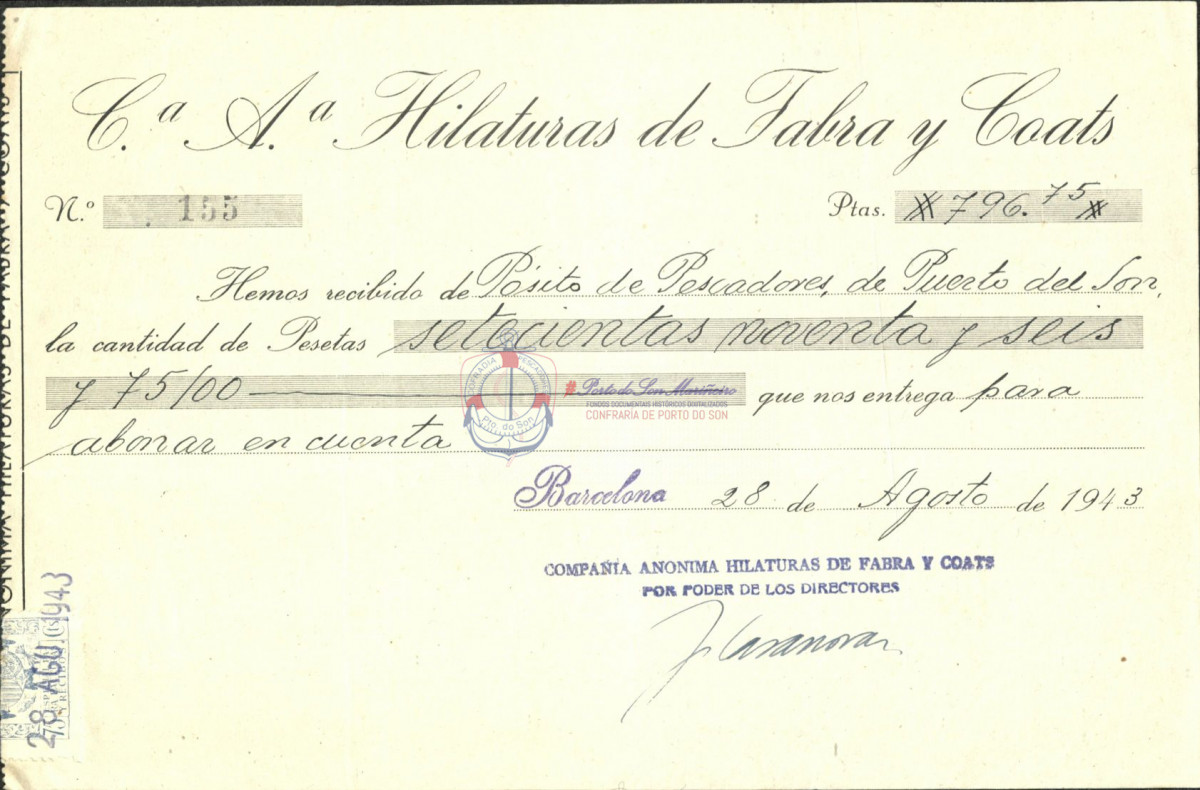 C.ª A.ª Hilaturas de Fabra y Coats
N.º 155 Ptas. 796.75
Hemos recibido de Pósito de Pescadores, de Puerto del Son,
la cantidad de Pesetas setecientas noventa y seis
y 75/00 que nos entrega para
abonar en cuenta
COFRADIA PESCADORES
Pto. do Son
# Porto do Son Mariñeiro
FONDOS DOCUMENTAIS HISTÓRICOS DIXITALIZADOS
CONFRARÍA DE PORTO DO SON
Barcelona 28 de Agosto de 1943
COMPAÑIA ANONIMA HILATURAS DE FABRA Y COATS
POR PODER DE LOS DIRECTORES
J. Casanovas
28 AGO 1943